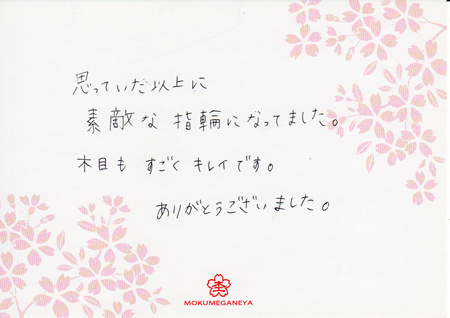 思っていた以上に
素敵な指輪になってました。
木目もすごくキレイです。
ありがとうございました。
MOKUMEGANEYA